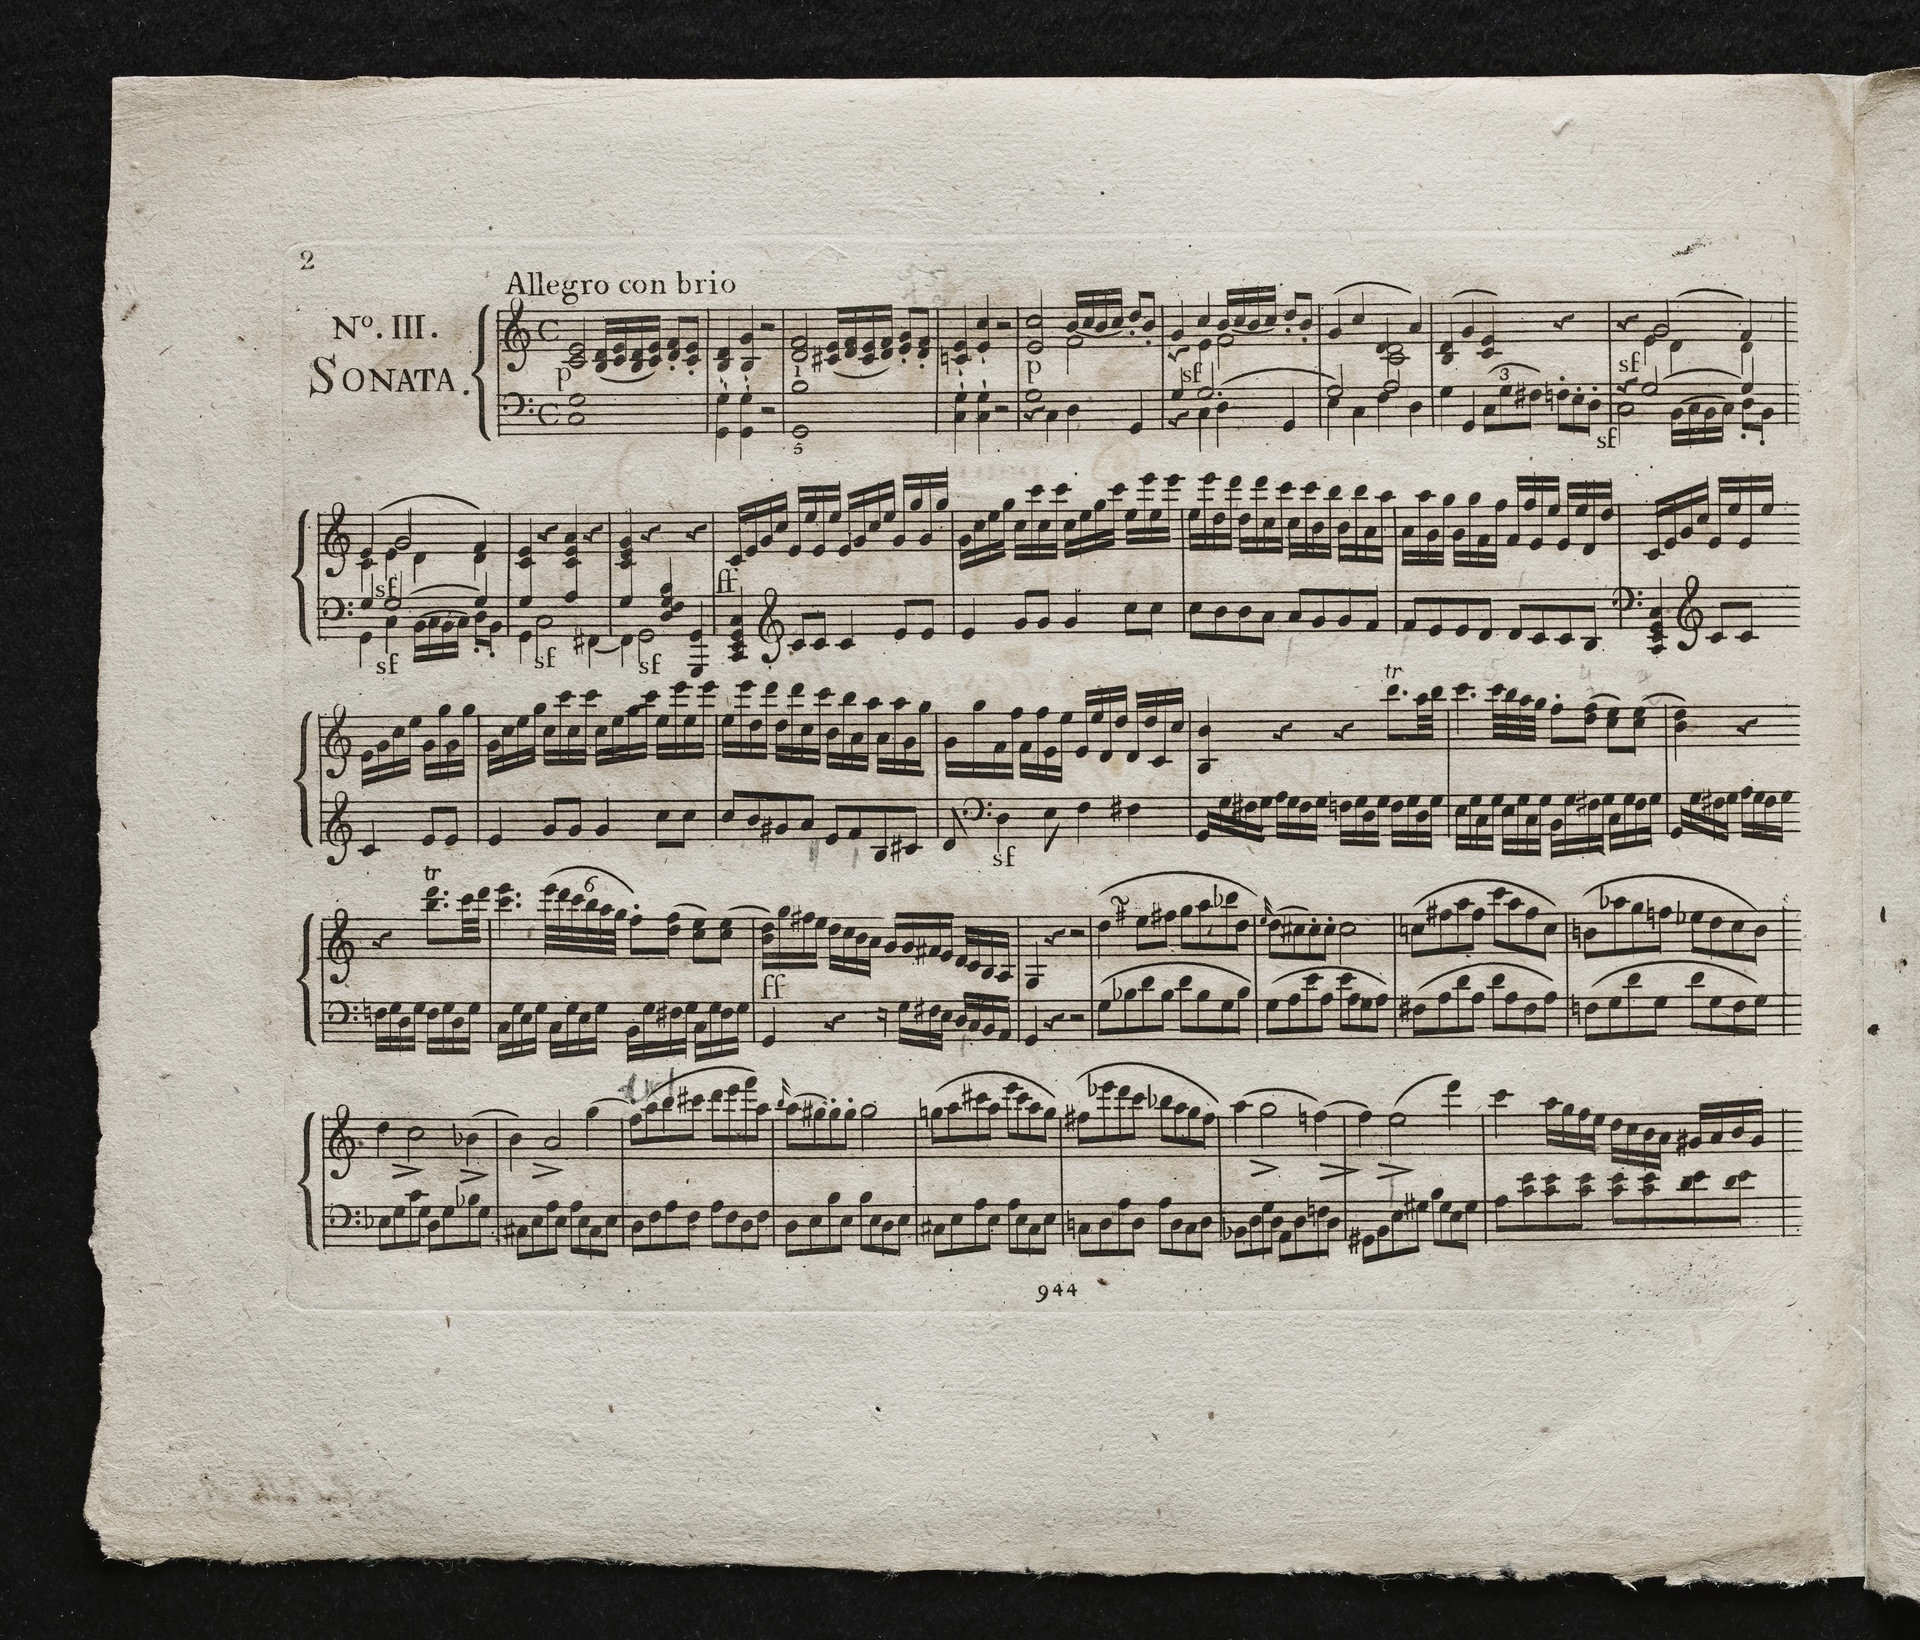 2
Allegro con brio
Nº. III.
SONATA.
p
p
sf
3
sf
sf
5
sf
sf
sf
sf
ff
tr
sf
tr
6
ff
944